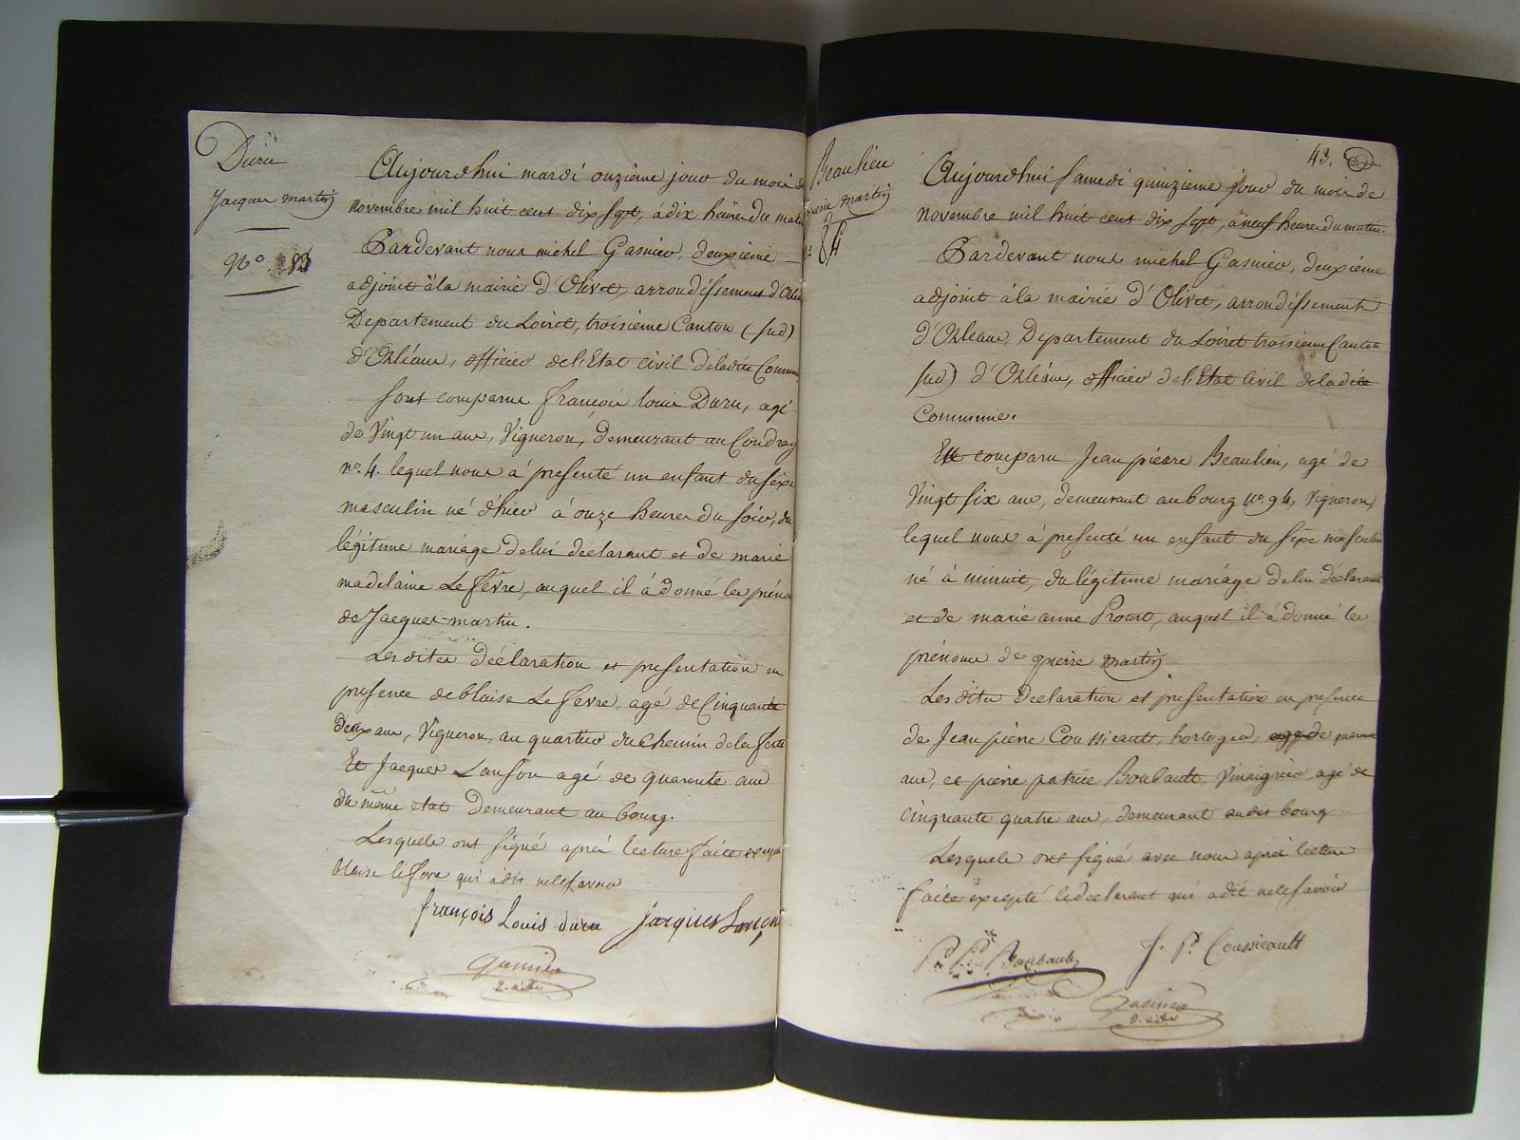 Duru
Jacques martin
N.o 83
Aujourdhui mardi onzième jour du mois de
novembre mil huit cent dix sept, à dix heures du matin
Pardevant nous michel Gasnier, deuxième
adjoint à la mairie d'Olivet, arrondissement d'Orléans
Departement du Loiret, troisième Canton (sud)
d'Orléans, officier de l'Etat civil de ladite Commune
Sont comparus françois louis Duru, agé
de Vingt un ans, Vigneron, demeurant au Coudray
n.o 4. lequel nous a présenté un enfant du sexe
masculin né d'hier à onze heures du soir, du
légitime mariage de lui déclarant et de marie
madelaine Le fèvre, auquel il à donné les prénoms
de Jacques martin.
Lesdites déclaration et presentation en
presence de blaise Le fèvre agé de Cinquante
deux ans, Vigneron, au quartier du chemin de la ferté
Et Jacques Lanson agé de quarente ans
du même etat demeurant au bourg.
Lesquels ont signé après lecture faite excepté
blaise lefevre qui a dit ne le savoir
françois Louis duru Jacques Lanson
Gasnier
2. adj
43.
Beaulieu
pierre martin
84
Aujourdhui samedi quinzième jour du mois de
Novembre mil huit cent dix sept, à neuf heures du matin.
Pardevant nous michel Gasnier, deuxième
adjoint à la mairie d'Olivet, arrondissement
d'Orléans, Departement du Loiret troisième Canton
sud) d'Orléans, officier de l'Etat Civil de ladite
Commune.
Est comparu Jean pierre Beaulieu, agé de
Vingt six ans, demeurant au bourg n.o 94, Vigneron,
lequel nous à présenté un enfant du sexe masculin
né à minuit, du légitime mariage de lui déclarant
et de marie anne Proust, auquel il à donné les
prénoms de pierre martin
Lesdites Declaration et presentation en presence
de Jean pierre Coussicault, horloger, agé de
ans, et pierre patrice Boubault, Vinaigrier, agé de
cinquante quatre ans, demeurant audit bourg
Lesquels ont signé avec nous après lecture
faite excepté le déclarant qui a dit ne le savoir
P. P. Boubault J. P. Coussicault
Gasnier
2. adj